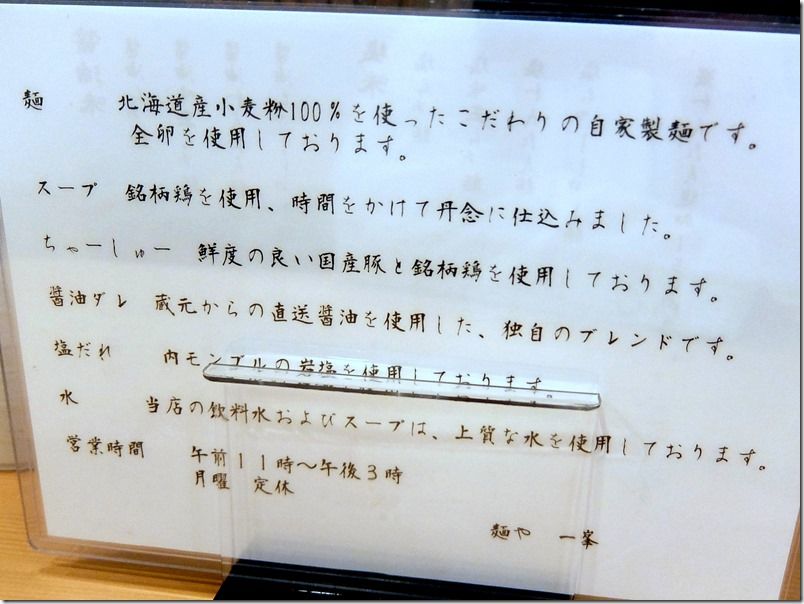 麺 北海道産小麦粉100%を使ったこだわりの自家製麺です。
全卵を使用しております。
スープ 銘柄鶏を使用、時間をかけて丹念に仕込みました。
ちゃーしゅー 鮮度の良い国産豚と銘柄鶏を使用しております。
醤油ダレ 蔵元からの直送醤油を使用した、独自のブレンドです。
塩だれ 内モンゴルの岩塩を使用しております。
水 当店の飲料水およびスープは、上質な水を使用しております。
営業時間 午前11時～午後3時
月曜 定休
麺や 一峯